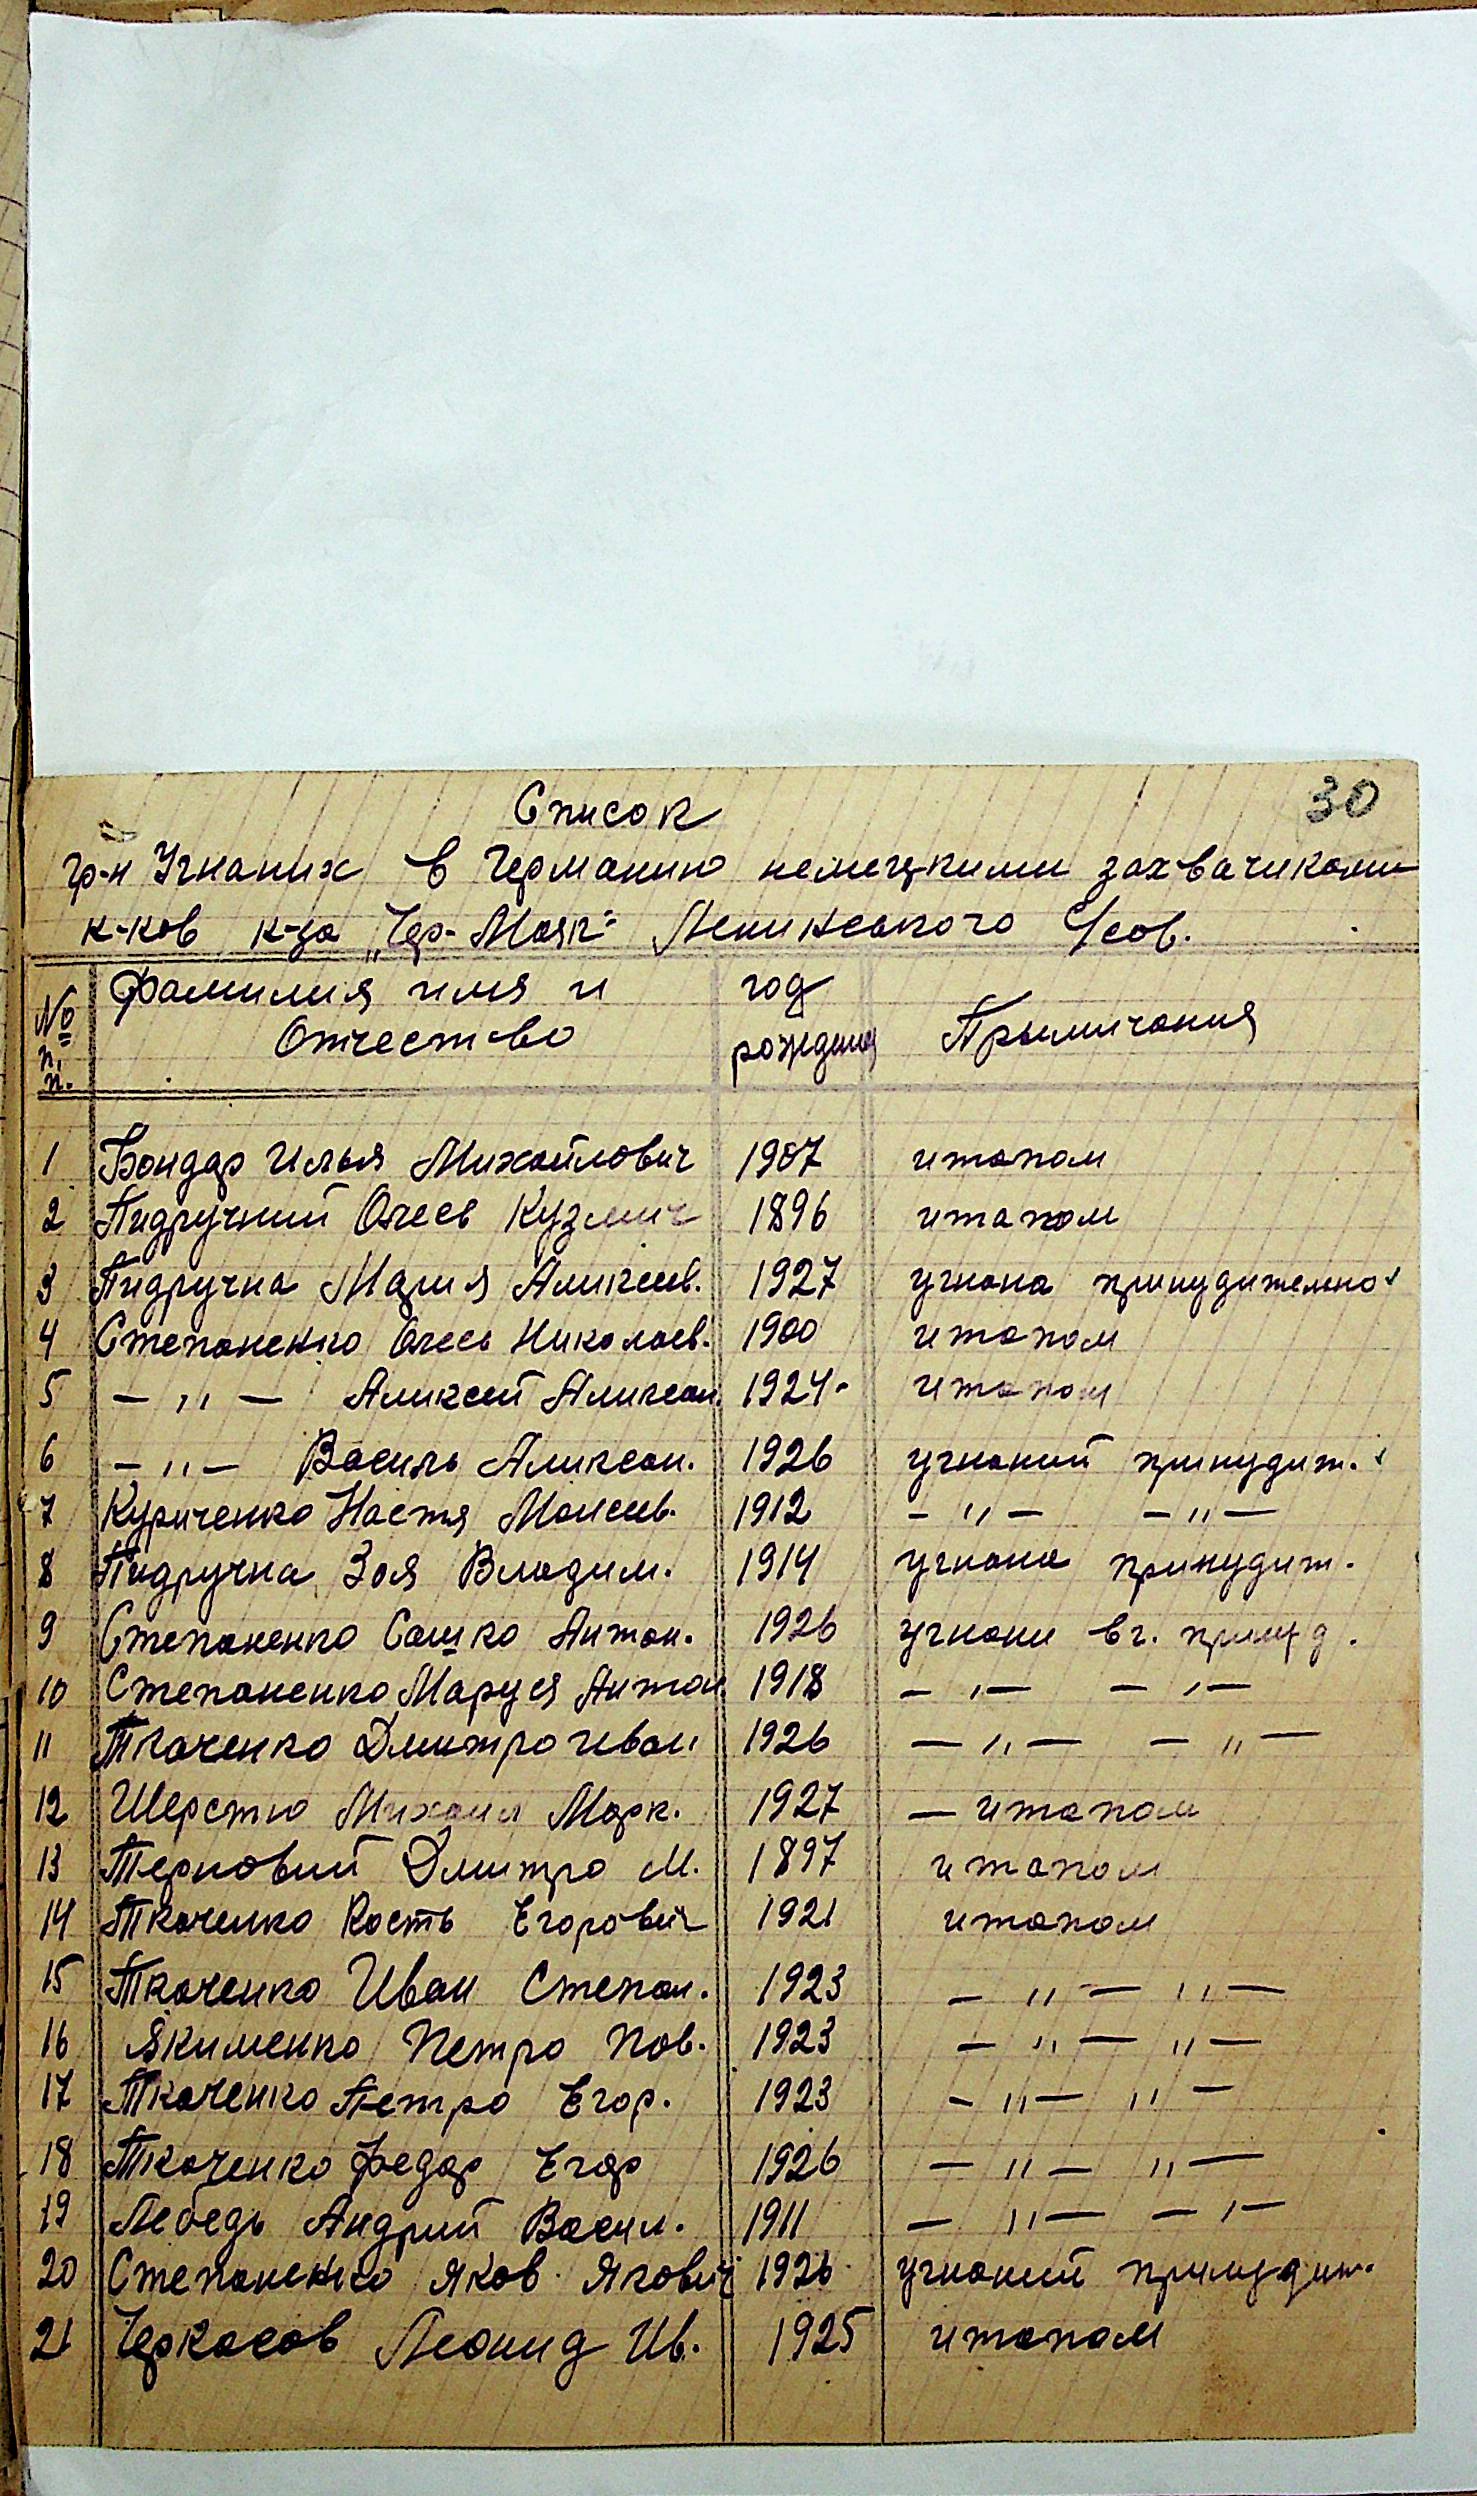 30
Список
гр-н Угнаних в Германию немецкими захвачиками
к-ков к-за „Чер-Маяк" Ленинського С/сов.
№ п. п. Фамилия имя и Отчество год рождения Прымичания
1 Бондар Илья Михайлович 1907 итапом
2 Пидручний Олесь Кузмич 1896 итапом
3 Пидручна Мария Аликсеев. 1927 угнана принудительно
4 Степаненко Олесь Николаев. 1900 итапом
5 — „ — Аликсей Аликсан. 1924 итапом
6 — „ — Василь Аликсан. 1926 угнаний принудит.
7 Куриченко Настя Моисеев. 1912 — „ — — „ —
8 Пидручна Зоя Владим. 1914 угнана принудит.
9 Степаненко Сашко Антон. 1926 угнани в г. принуд.
10 Степаненко Маруся Антон 1918 — „ — — „ —
11 Ткаченко Дмитро Иван 1926 — „ — — „ —
12 Шерстю Михаил Марк. 1927 — итапом
13 Терновий Дмитро М. 1897 итапом
14 Ткаченко Кость Егорович 1921 итапом
15 Ткаченко Иван Степан. 1923 — „ — „ —
16 Якименко Петро Пав. 1923 — „ — „ —
17 Ткаченко Петро Егор. 1923 — „ — „ —
18 Ткаченко Федар Егор 1926 — „ — „ —
19 Лебедь Андрий Васил. 1911 — „ — — „ —
20 Степаненко Яков Якович 1926 угнаний принудит.
21 Черкасов Леонид Ив. 1925 итапом